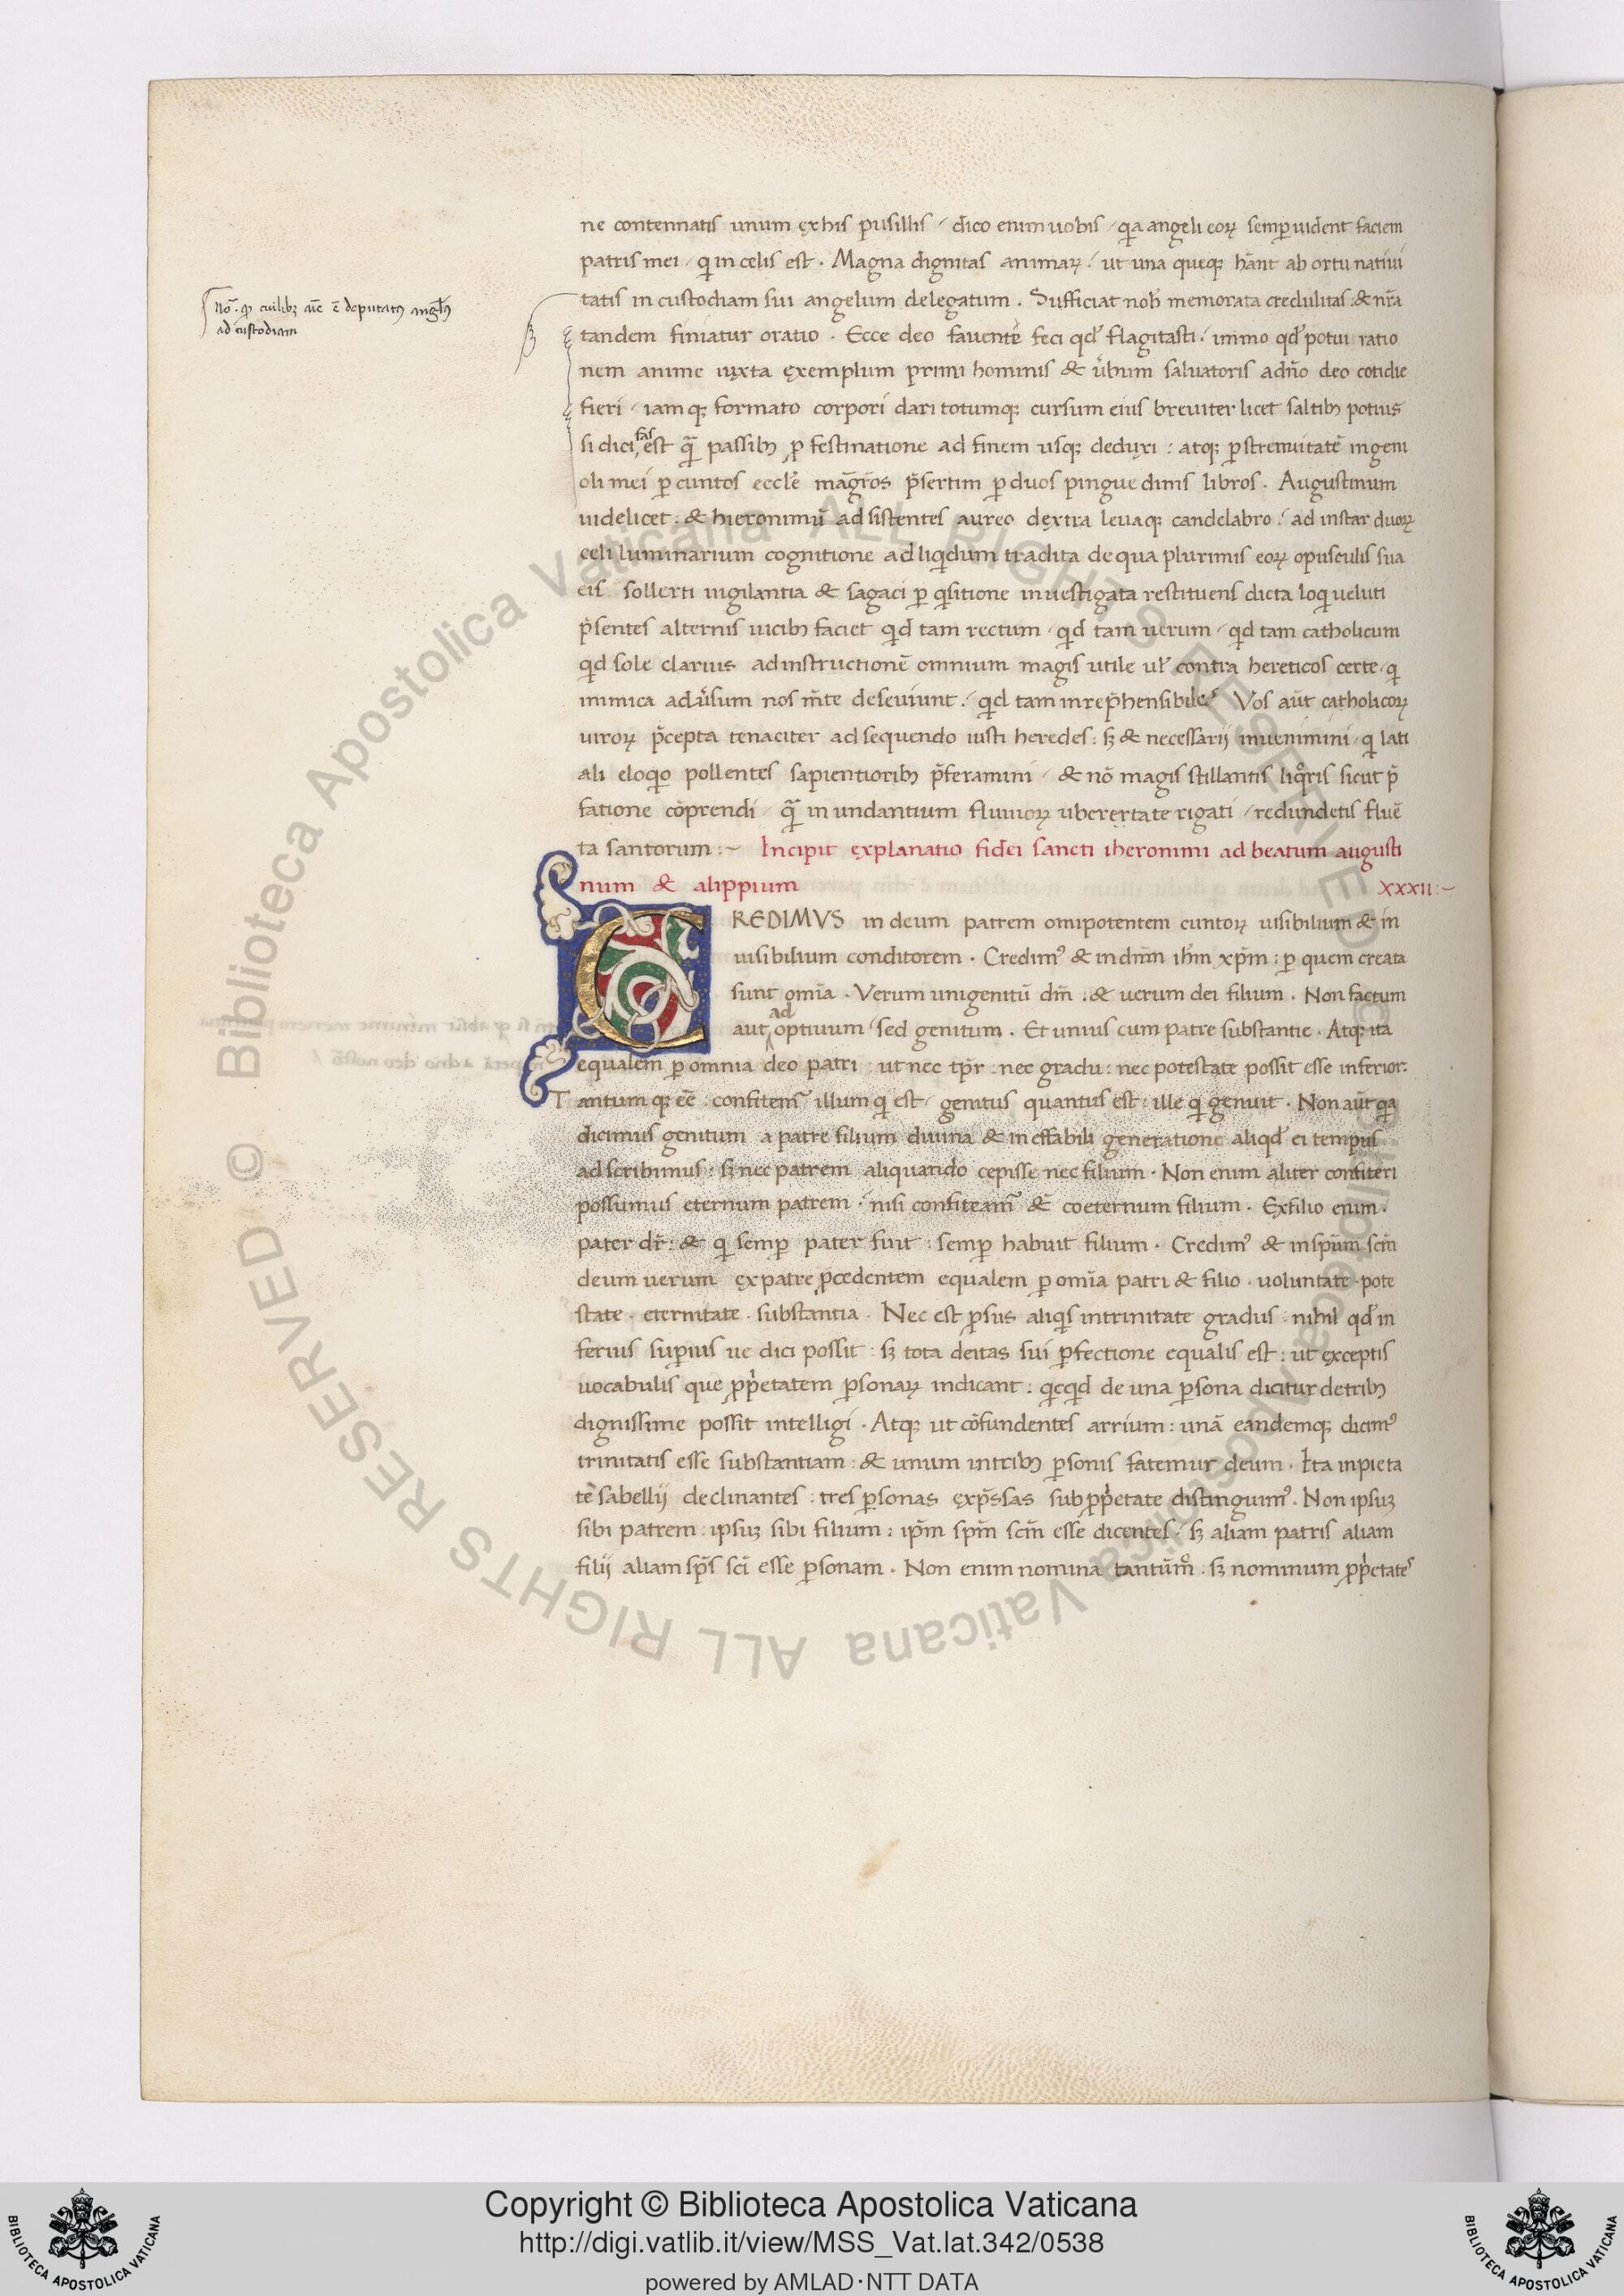 ne contennatis unum ęxhis pusillis / dico enim uobis / qa angeli eoꝝ semꝑ uident faciem
patris mei / qi in celis est . Magna dignitas animaꝝ / ut una queqꝫ hānt ab ortu natiui
tatis in custodiam sui angelum delegatum . Sufficiat nob̄ memorata credulitas : & nr̄a
tandem finiatur oratio . Ecce deo fauente feci qd̄ flagitasti / immo qd̄ potui ratio
nem anime iuxta ęxemplum primi hominis & u̓bum saluatoris adn̄o deo cotidie
fieri / iam qꝫ formato corpori dari totumqꝫ cursum eius breuiter licet saltibꝫ potius
si dici fas est qͣ̄ passibꝫ ꝑ festinatione ad finem usqꝫ deduxi : atqꝫ ꝑ strenuitatē ingeni
oli mei ꝑ cuntos eccle᷎ māgr̄os p̄sertim ꝑ duos pingue dinis libros . Augustinum
uidelicet : & hieronimū ad sistentes aureo dęxtra leuaqꝫ candelabro / ad instar duoꝝ
celi luminarium cognitione ad liqidum tradita de qua plurimis eoꝝ opusculis sua
eis sollerti uigilantia & sagaci ꝑ qisitione inuestigata restituens dicta loqi ueluti
p̄sentes alternis uicibꝫ faciet qid tam rectum / qid tam uerum / qid tam catholicum
qid sole clarius ad instructionē omnium magis utile ul̄ contra hereticos certe / qi
inimica adu̓sum nos m̄te deseuiunt / qid tam inrep̄hensibile ? Vos aūt catholicoꝝ
uiroꝝ p̄cepta tenaciter ad sequendo iusti heredes : sꝫ & necessarij inuenimini / qi lati
ali eloqio pollentes sapientioribꝫ p̄feramini / & nō magis stillantis liqͦris sicut p̄
fatione cōprendi / qͣ̄ in undantium fluuioꝝ ubcrertate rigati / redundetis fluē
ta santorum :~ Incipit ęxplanatio fidei sancti iheronimi ad beatum augusti
num & alippium XXXII :~
CREDIMVS in deum patrem omipotentem cuntoꝝ uisibilium & in
uisibilium conditorem . Credimꝰ & in dn̄m ih̄m xp̄m : ꝑ quem creata
sunt omīa . Verum unigenitū dm̄ : & uerum dei filium . Non factum
aut ad optiuum / sed genitum . Et unius cum patre substantie . Atqꝫ ita
equalem ꝑ omnia deo patri : ut nec tp̄r : nec gradu : nec potestate possit esse inferior :
Tantum qꝫ eē : confitemꝰ illum qi est / genitus quantus est : ille qi genuit . Non aūt qa
dicimus genitum a patre filium diuina & in effabili generatione aliqd̄ ei tempus
ad scribimus : sꝫ nec patrem aliquando cepisse nec filium . Non enim aliter confiteri
possumus eternum patrem . nisi confiteamꝰ & coeternum filium . Exfilio enim .
pater dr̄ : & qi semꝑ pater fuit : semꝑ habuit filium . Credimꝰ & in spm̄ scm̄
deum uerum ęxpatre ꝓcedentem equalem ꝑ omīa patri & filio . uoluntate . pote
state . eternitate . substantia . Nec est ꝓsus aliqis intrinitate gradus : nihil qd̄ in
ferius suꝑius ue dici possit : sꝫ tota deitas sui ꝑfectione equalis est : ut ęxceptis
uocabulis que ꝓp̓etatem ꝑsonaꝝ indicant : qicqid de una ꝑsona dicitur detribꝫ
dignissime possit intelligi . Atqꝫ ut cōfundentes arrium : unā eandemqꝫ dicimꝰ
trinitatis esse substantiam : & unum intribꝫ ꝑsonis fatemur deum . Ita inpieta
tē sabellij declinantes : tres ꝑsonas ęxp̄ssas sub ꝓp̓etate distinguimꝰ . Non ipsuꝫ
sibi patrem : ipsuꝫ sibi filium : ipm̄ spm̄ scm̄ esse dicentes : sꝫ aliam patris aliam
filij aliam sps̄ sci̅ esse ꝑsonam . Non enim nomina tantūmͦ : sꝫ nominum ꝓp̓etates
No̅ . ꝙ cuilibꝫ aīe ē deputatꝰ angl̄ꝰ
ad custodiam
Biblioteca Apostolica Vaticana ALL RIGHTS RESERVED ©
Biblioteca Apostolica Vaticana ALL RIGHTS RESERVED ©
Copyright © Biblioteca Apostolica Vaticana
http://digi.vatlib.it/view/MSS_Vat.lat.342/0538
powered by AMLAD·NTT DATA
BIBLIOTECA APOSTOLICA VATICANA
BIBLIOTECA APOSTOLICA VATICANA